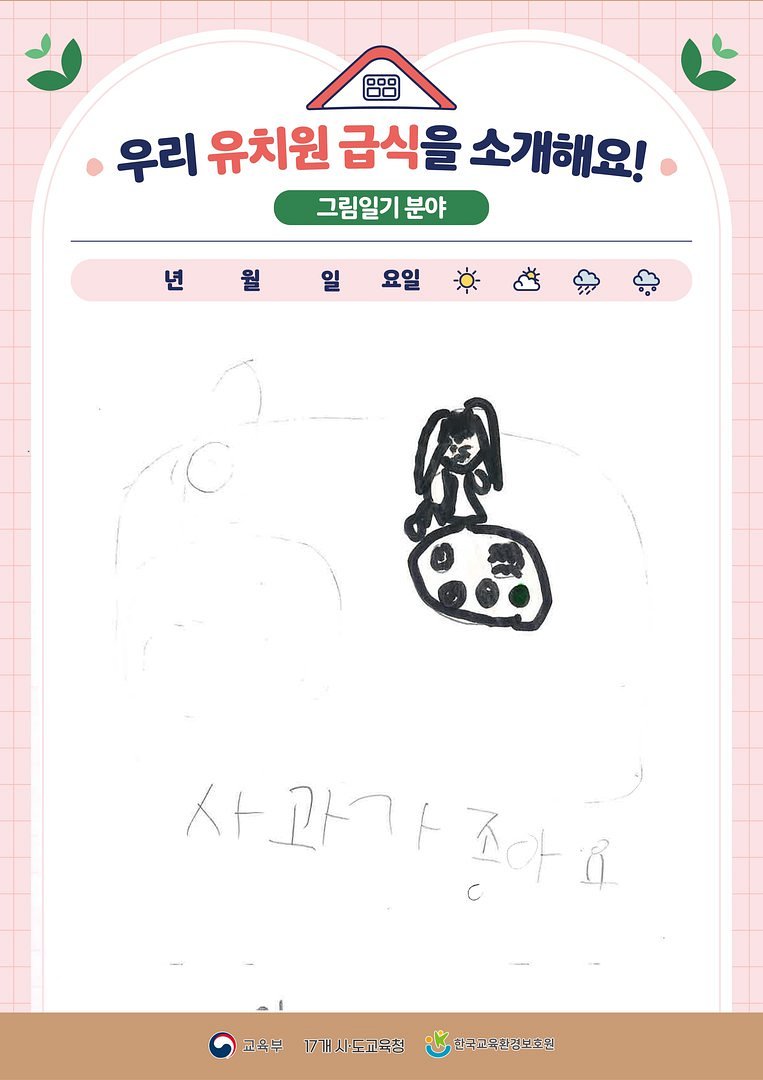 우리 유치원 급식을 소개해요!
그림일기 분야
년 월 일 요일
사과가 종아요
교육부 17개 시·도교육청 한국교육환경보호원